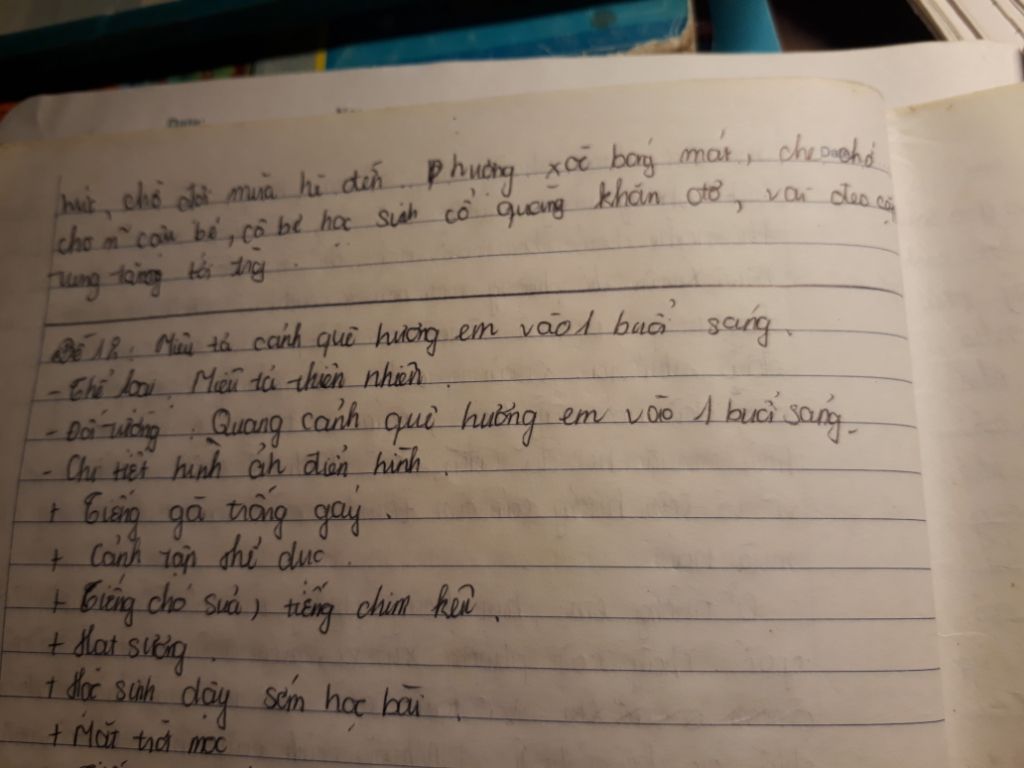 hực, chờ đợi mùa hè đến. Phượng xoè bóng mát, che
cho n~ cậu bé, cô bé học sinh cổ quàng khăn đỏ, vai đeo cặp
tung tăng tới
Đề 18: Miêu tả cảnh quê hương em vào 1 buổi sáng.
- Thể loại. Miêu tả thiên nhiên.
- Đối tượng: Quang cảnh quê hương em vào 1 buổi sáng.
- Chi tiết hình ảnh điển hình.
+ Tiếng gà trống gáy.
+ Cảnh tập thể dục.
+ Tiếng chó sủa, tiếng chim kêu.
+ Hạt sương.
+ Học sinh dậy sớm học bài.
+ Mặt trời mọc